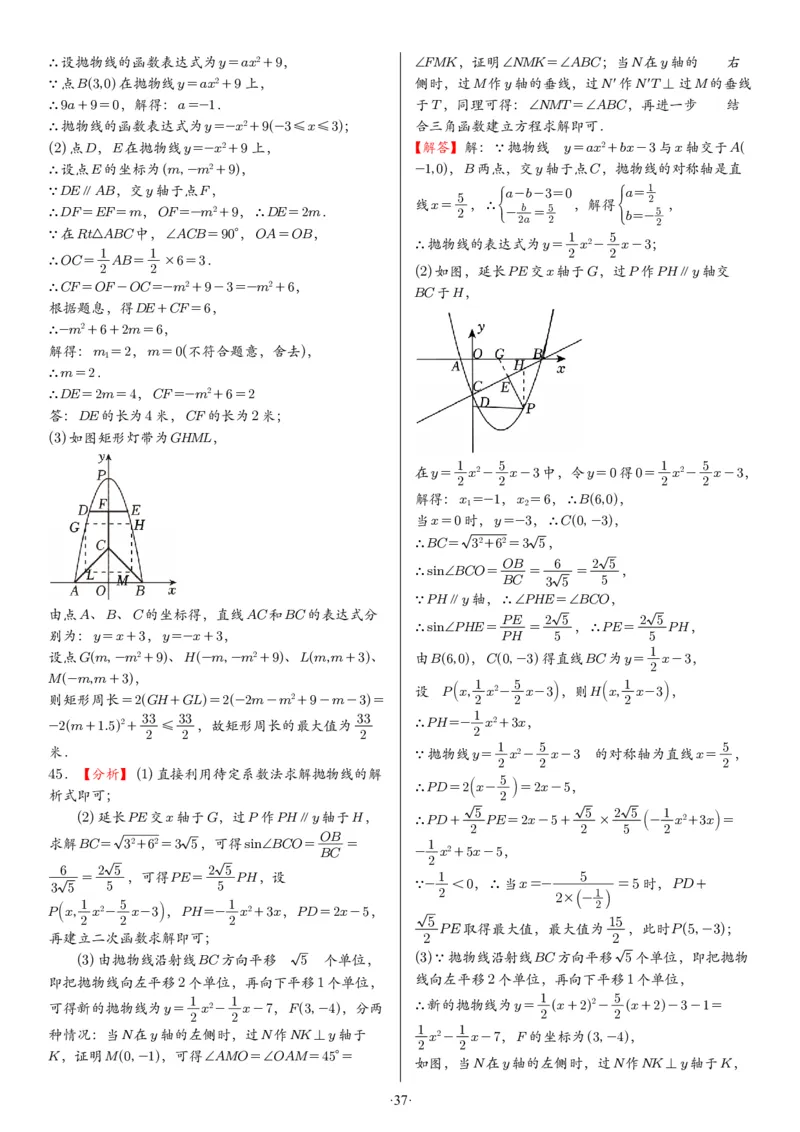 ∴设抛物线的函数表达式为y=ax²+9，
∵点B(3,0)在抛物线y=ax²+9上，
∴9a+9=0，解得：a=−1．
∴抛物线的函数表达式为y=−x²+9(−3⩽x⩽3)；
(2)点D，E在抛物线y=−x²+9上，
∴设点E的坐标为(m,−m²+9)，
∵DE∥AB，交y轴于点F，
∴DF=EF=m，OF=−m²+9，∴DE=2m．
∵在Rt△ABC中，∠ACB=90°，OA=OB，
∴OC=1/2AB=1/2×6=3．
∴CF=OF−OC=−m²+9−3=−m²+6，
根据题息，得DE+CF=6，
∴−m²+6+2m=6，
解得：m₁=2，m=0(不符合题意，舍去)，
∴m=2．
∴DE=2m=4，CF=−m²+6=2
答：DE的长为4米，CF的长为2米；
(3)如图矩形灯带为GHML，
y
P
D F E
G H
C
L M
A O B x
由点A、B、C的坐标得，直线AC和BC的表达式分
别为：y=x+3，y=−x+3，
设点G(m,−m²+9)、H(−m,−m²+9)、L(m,m+3)、
M(−m,m+3)，
则矩形周长=2(GH+GL)=2(−2m−m²+9−m−3)=
−2(m+1.5)²+33/2⩽33/2，故矩形周长的最大值为33/2
米．
45．【分析】(1)直接利用待定系数法求解抛物线的解
析式即可；
(2)延长PE交x轴于G，过P作PH∥y轴于H，
求解BC=√(3²+6²)=3√5，可得sin∠BCO=OB/BC=
6/(3√5)=2√5/5，可得PE=2√5/5PH，设
P(x,1/2x²−5/2x−3)，PH=−1/2x²+3x，PD=2x−5，
再建立二次函数求解即可；
(3)由抛物线沿射线BC方向平移 √5 个单位，
即把抛物线向左平移2个单位，再向下平移1个单位，
可得新的抛物线为y=1/2x²−1/2x−7，F(3,−4)，分两
种情况：当N在y轴的左侧时，过N作NK⊥y轴于
K，证明M(0,−1)，可得∠AMO=∠OAM=45°=
∠FMK，证明∠NMK=∠ABC；当N在y轴的 右
侧时，过M作y轴的垂线，过N′作N′T⊥过M的垂线
于T，同理可得：∠NMT=∠ABC，再进一步 结
合三角函数建立方程求解即可．
【解答】解：∵抛物线 y=ax²+bx−3与x轴交于A(
−1,0)，B两点，交y轴于点C，抛物线的对称轴是直
线x=5/2，∴{a−b−3=0，−b/2a=5/2，解得{a=1/2，b=−5/2，
∴抛物线的表达式为y=1/2x²−5/2x−3；
(2)如图，延长PE交x轴于G，过P作PH∥y轴交
BC于H，
y
O G B
A H x
C E
D P
在y=1/2x²−5/2x−3中，令y=0得0=1/2x²−5/2x−3，
解得：x₁=−1，x₂=6，∴B(6,0)，
当x=0时，y=−3，∴C(0,−3)，
∴BC=√(3²+6²)=3√5，
∴sin∠BCO=OB/BC=6/(3√5)=2√5/5，
∵PH∥y轴，∴∠PHE=∠BCO，
∴sin∠PHE=PE/PH=2√5/5，∴PE=2√5/5PH，
由B(6,0)，C(0,−3)得直线BC为y=1/2x−3，
设 P(x,1/2x²−5/2x−3)，则H(x,1/2x−3)，
∴PH=−1/2x²+3x，
∵抛物线y=1/2x²−5/2x−3 的对称轴为直线x=5/2，
∴PD=2(x−5/2)=2x−5，
∴PD+√5/2PE=2x−5+√5/2×2√5/5(−1/2x²+3x)=
−1/2x²+5x−5，
∵−1/2<0，∴当x=−5/(2×(−1/2))=5时，PD+
√5/2PE取得最大值，最大值为15/2，此时P(5,−3)；
(3)∵抛物线沿射线BC方向平移√5个单位，即把抛物
线向左平移2个单位，再向下平移1个单位，
∴新的抛物线为y=1/2(x+2)²−5/2(x+2)−3−1=
1/2x²−1/2x−7，F的坐标为(3,−4)，
如图，当N在y轴的左侧时，过N作NK⊥y轴于K，
·37·